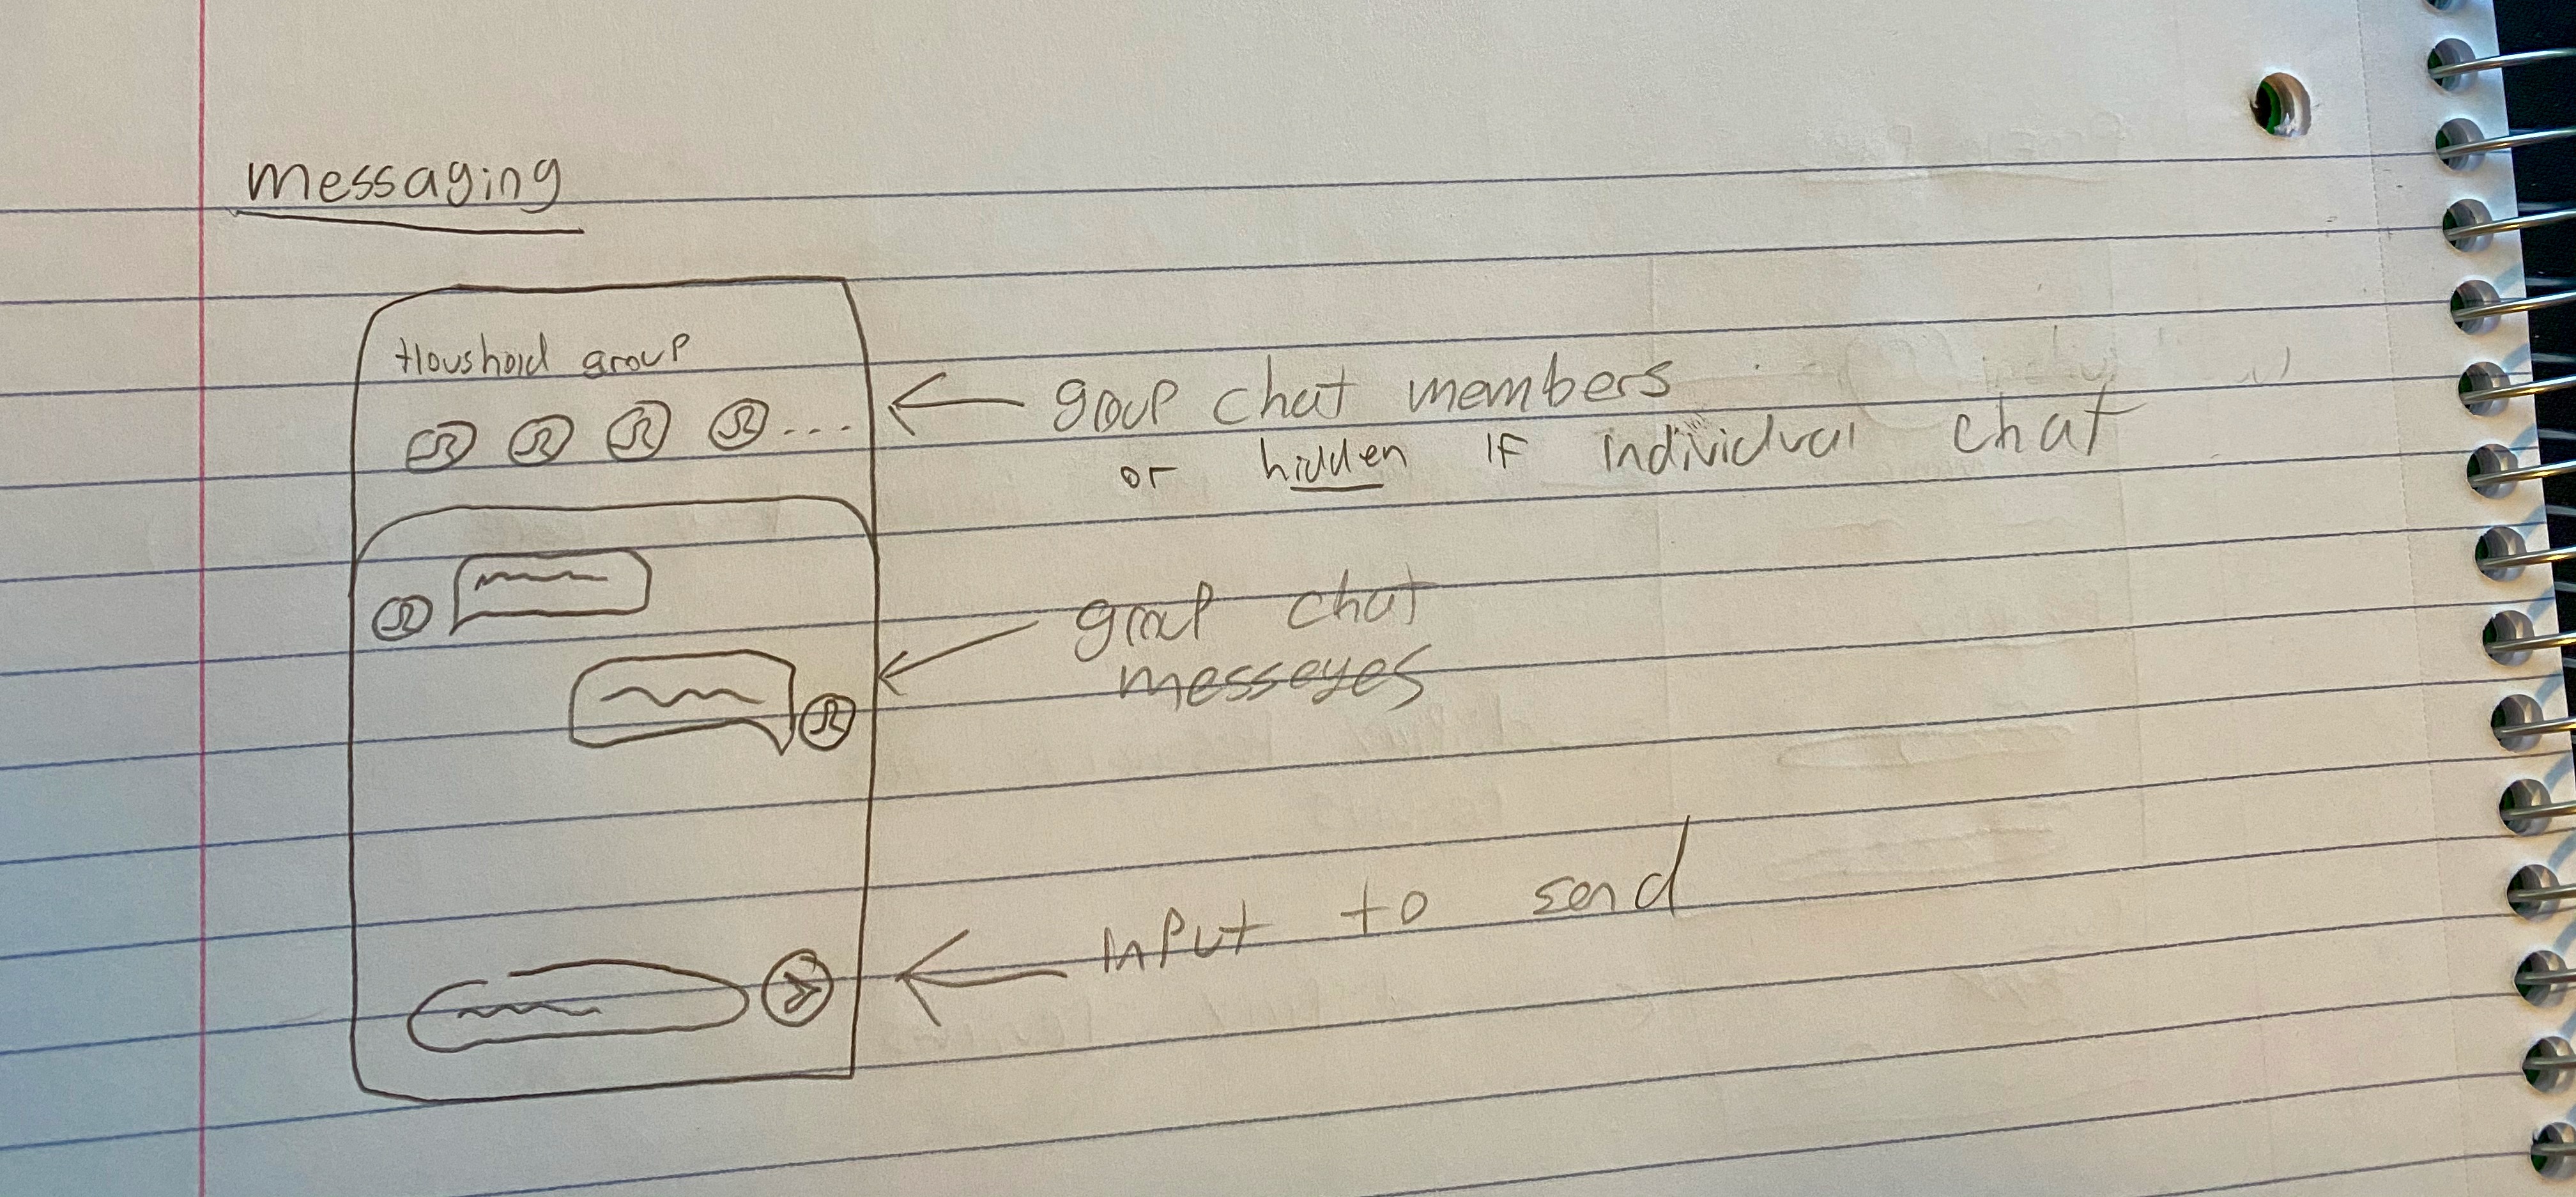 messaging
Houshold group
...
group chat members
or hidden if individual chat
group chat
messeges
input to send